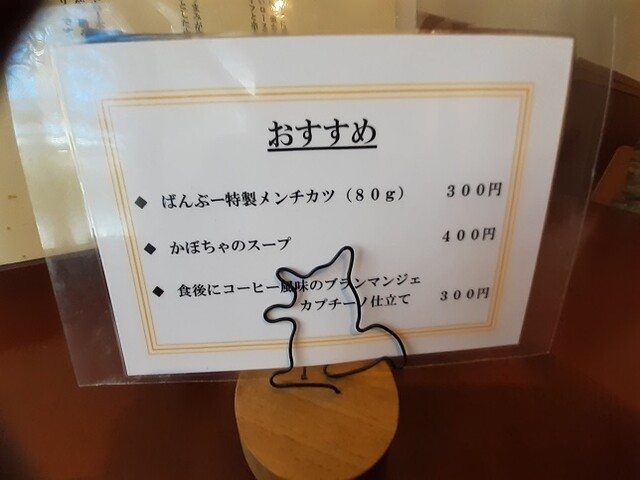 おすすめ
◆ ばんぶー特製メンチカツ（８０ｇ） ３００円
◆ かぼちゃのスープ ４００円
◆ 食後にコーヒー風味のブランマンジェ
カプチーノ仕立て ３００円